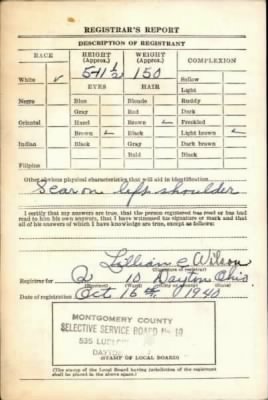 REGISTRAR'S REPORT
DESCRIPTION OF REGISTRANT
RACE HEIGHT (Approx.) WEIGHT (Approx.) COMPLEXION
5-11 1/2 150 Sallow
White ✓ EYES HAIR Light
Negro Blue Blonde Ruddy
Gray Red Dark
Oriental Hazel Brown ✓ Freckled
Brown ✓ Black Light brown ✓
Indian Black Gray Dark brown
Bald Black
Filipino
Other obvious physical characteristics that will aid in identification
Scar on left shoulder
I certify that my answers are true; that the person registered has read or has had
read to him his own answers; that I have witnessed his signature or mark and that
all of his answers of which I have knowledge are true, except as follows:
Lillian C Wilson
(Signature of registrar)
Registrar for Q 10 Dayton Ohio
(Precinct) (Ward) (City or county) (State)
Date of registration Oct 16 1940
MONTGOMERY COUNTY
SELECTIVE SERVICE BOARD No 10
535 
DAYTON
(STAMP OF LOCAL BOARD)
(The stamp of the Local Board having jurisdiction of the registrant
shall be placed in the above space.)